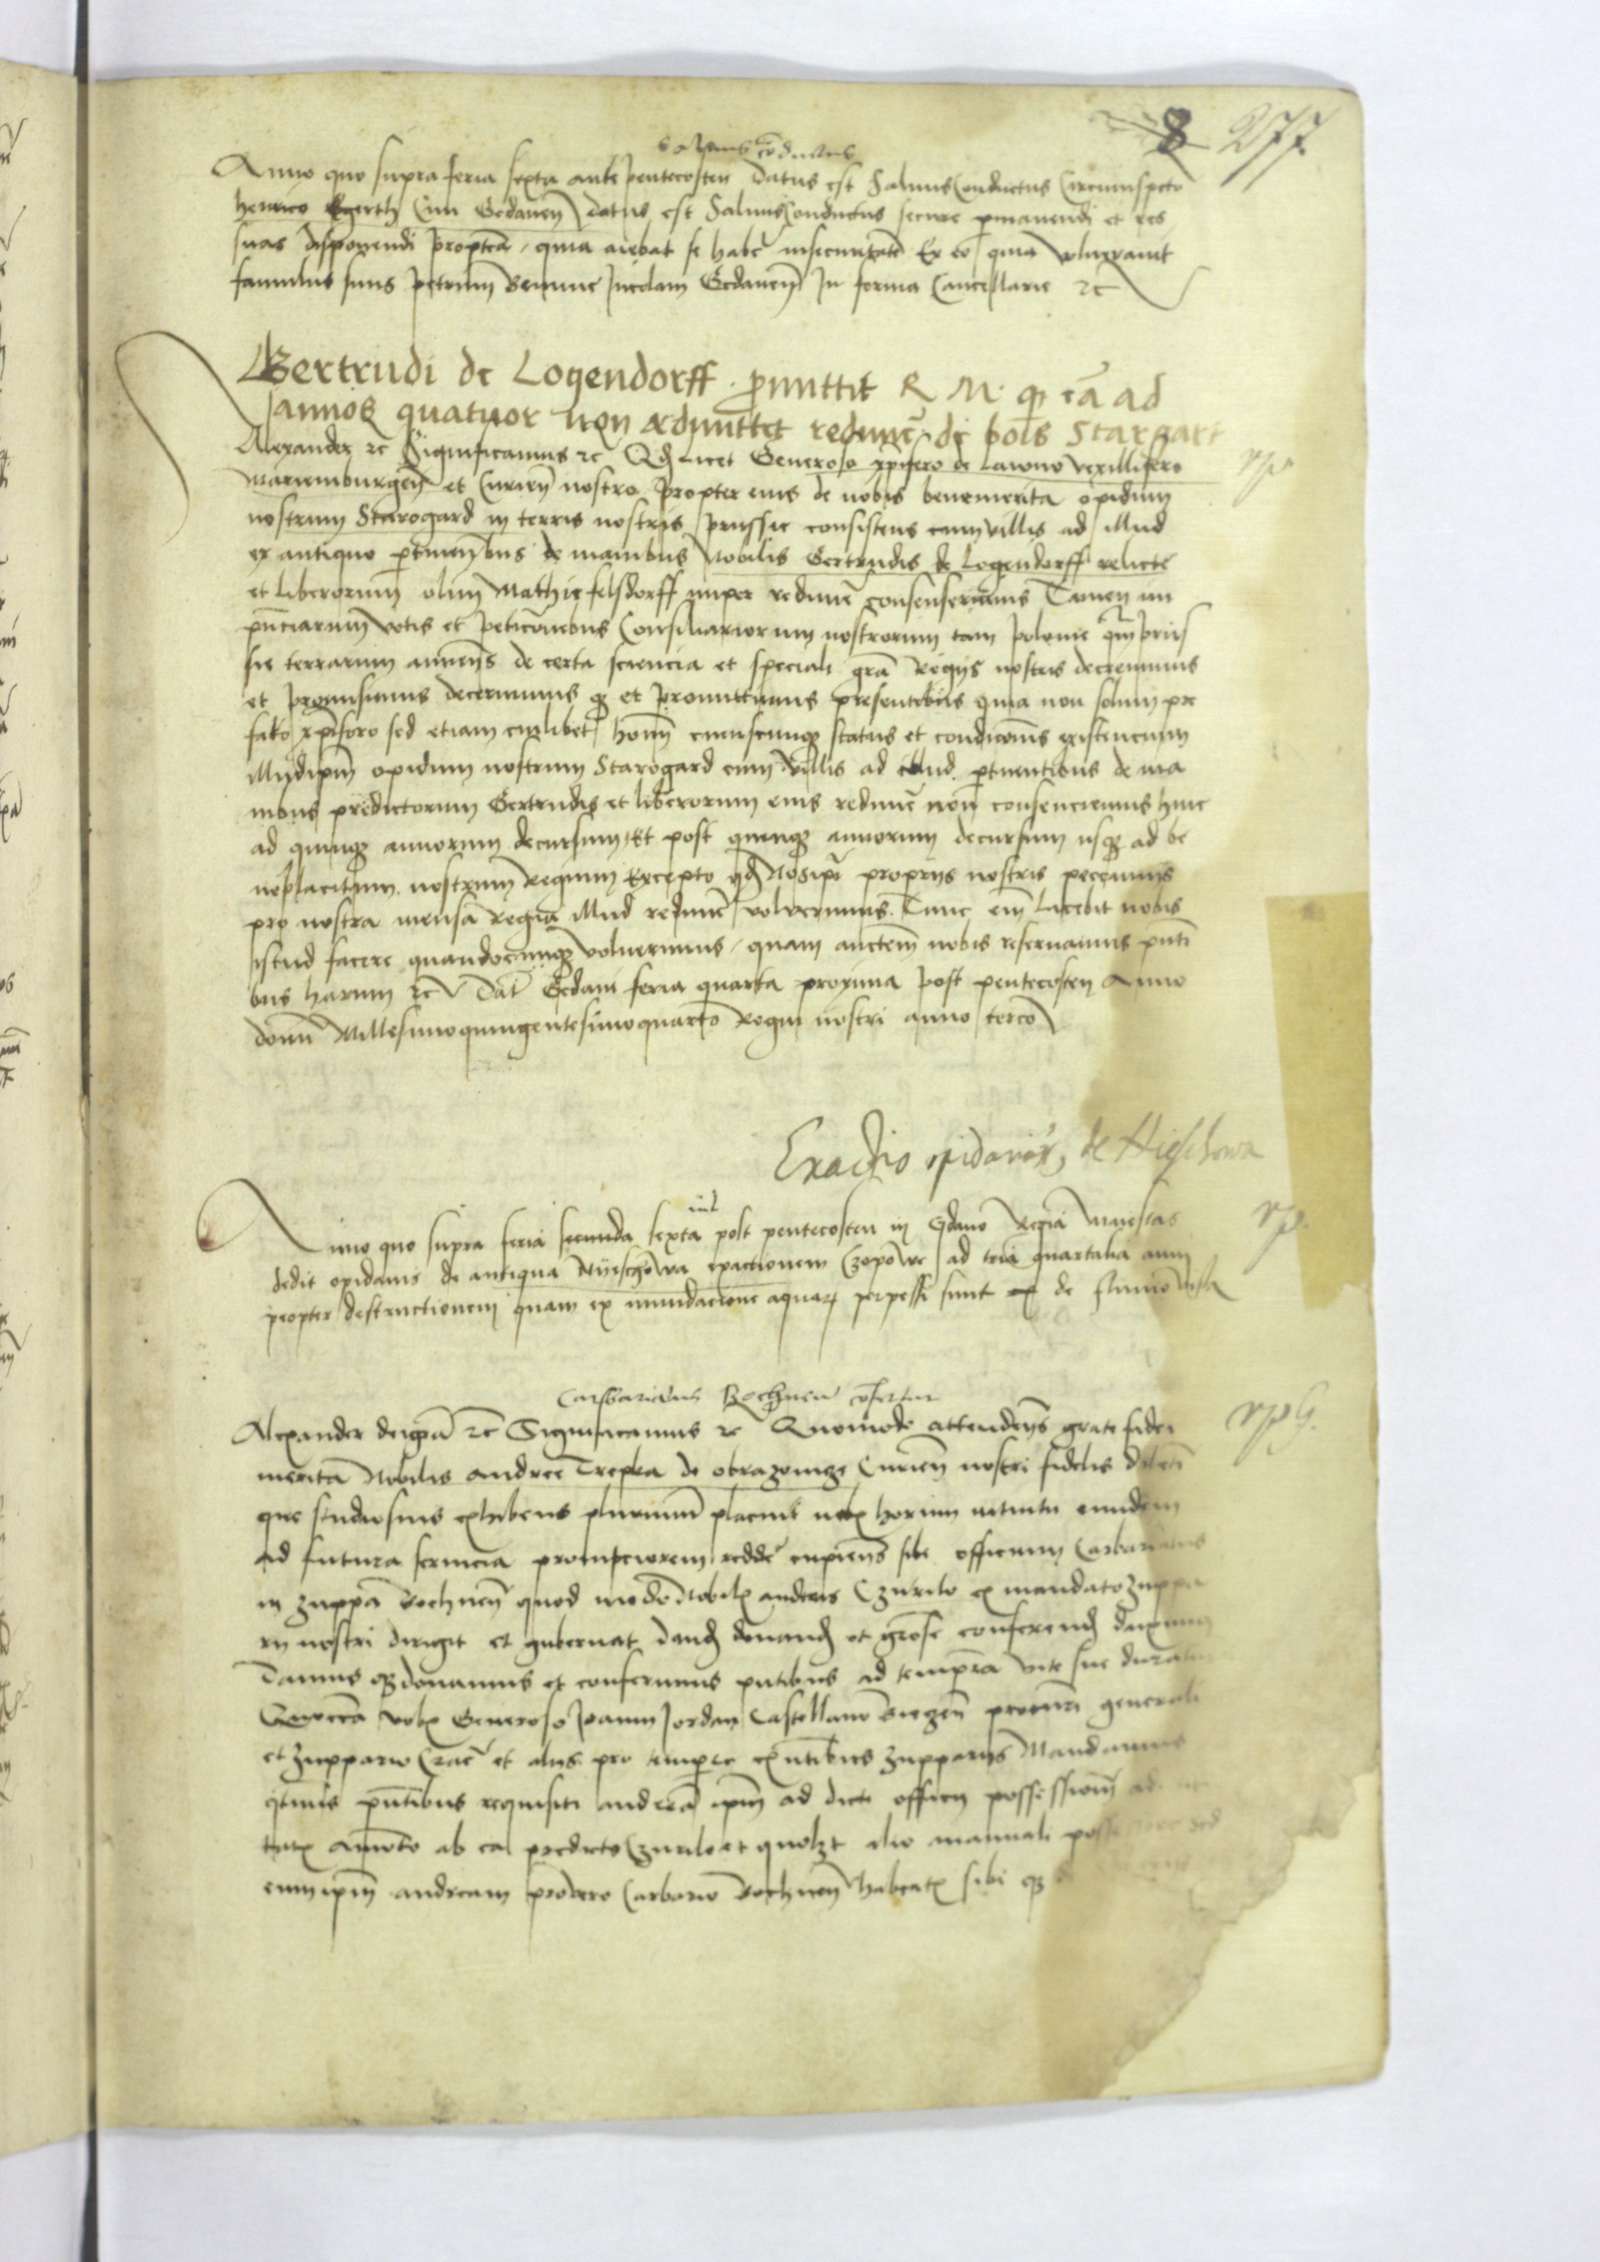 8 277
Salvus cōductus
Anno quo supra feria sexta ante pentecosten datus est Salvus Conductus Circumspecto
henrico Egerth Civi Gedaneñ datus est Salvus Conductus secure pmanendi et res
suas disponendi propterea quia aiebat se habē insecuritatē Ex eo quia
famulus suus petrum Benune Incolam Gedaneñ In forma Cancellarie ꝛc
Gertrudi de Logendorff promittit R M ꝙ eā ad
annos quatuor non admittet redimē de boīs Stargart
Alexander ꝛc Significamus ꝛc Qd Licet Generoso xpofero de Laiono vexillifero
Mariemburgeñ et Curieñ nostro propter eius de nobis benemerita opidum
nostrum Starogard in terris nostris prussie consistens cum villis ad illud
ex antiquo ptineñbus de manibus Nobilis Gertrudis de Logendorff relicte
et liberorum olim Mathie felsdorff nuper redimē consenserimus Tamen in
votis et peticōnibus Consiliariorum nostrorum tam polonie qm prus
sie terrarum annueñs de certa sciencia et speciali grā Regijs nostris decrevimus
et promisimus decernimus qz et promittimus presentibus quia non solum pre
fato xpoforo sed etiam cuilibet homī cuiuscunqz status et condicōnis existencium
opidum nostrum Starogard cum villis ad illud ptinentibus de ma
nibus predictorum Gertrudis et liberorum eius redimē non consenciemus hinc
ad quinqz annorum decursum Et post quinqz annorum decursum usqz ad be
neplacitum nostrum Regium Excepto qd Nosipī proprijs nostris pecunijs
pro nostra mensa Regia illud redimē voluerimus Tunc eñ Licebit nobis
istud facere quandocunqz voluerimus quam auctem nobis reservamus pñti
bus harum ꝛc Dat Gedani feria quarta proxima post pentecosten Anno
domī Millesimoquingentesimoquarto Regni nostri anno tercō
Exactio opidanor, de Nieschowa
Anno quo supra feria secunda sexta post pentecosten in Gdano Regia Maiestas
dedit opidanis de antiqua Nyeschowa exactionem Czopowe ad tria quartalia anni
propter destructionem quam ex inundacione aquar perpessi sunt de fluvio Visla
Carbariatus Bochneñ cōfertur
Alexander dei grā ꝛc Significamus ꝛc Quomodo attendeñs grate fidei
merita Nobilis andree Trepka de obrazowicze Curieñ nostri fidelis dilecti
que studiosius exhibens plurimū placuit nobis horum intuitu eundem
ad futura servicia promptiorem reddē cupieñs sibi officium Carbariatus
in zuppa Bochneñ quod modo Nobilis andreas Czurilo ex mandato zuppa
rij nostri dirigit et gubernat dand donand et grose conferend duximus
Damus qz donamus et conferimus pñtibus ad tempora vite sue
vobis Generoso Joanni Jordan Castellano Biezeñ procuri generali
et zuppario Crac et alijs pro tempore exñtibus zupparijs Mandamus
qtinus pñtibus requisiti andreā ipm ad dicti officij possessionē
amoto ab ea predicto Czurilo et quolzt alio manuali
eum ipm andream pro vero Carbario Bochneñ habeatis sibi qz